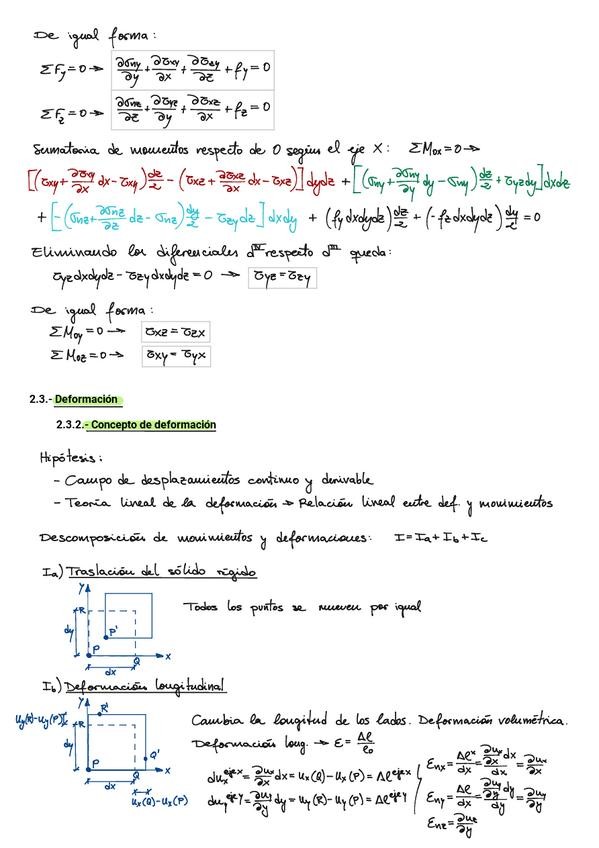 De igual forma:
ΣFy=0 → ∂σny/∂y + ∂τxy/∂x + ∂τzy/∂z + fy = 0
ΣFz=0 → ∂σnz/∂z + ∂τyz/∂y + ∂τxz/∂x + fz = 0
Sumatoria de momentos respecto de O según el eje X: ΣMox=0 →
[(τxy + ∂τxy/∂x dx - τxy) dz/2 - (τxz + ∂τxz/∂x dx - τxz)] dydz + [(σny + ∂σny/∂y dy - σny) dz/2 + τyz dy] dxdz
+ [-(σnz + ∂σnz/∂z dz - σnz) dy/2 - τzy dz] dxdy + (fy dxdydz) dz/2 + (-fz dxdydz) dy/2 = 0
Eliminando los diferenciales d^IV respecto d^III queda:
τyz dxdydz - τzy dxdydz = 0 → τyz = τzy
De igual forma:
ΣMoy = 0 → τxz = τzx
ΣMoz = 0 → τxy = τyx
2.3.- Deformación
2.3.2.- Concepto de deformación
Hipótesis:
- Campo de desplazamientos continuo y derivable
- Teoría lineal de la deformación → Relación lineal entre def. y movimientos
Descomposición de movimientos y deformaciones: I = Ia + Ib + Ic
Ia) Traslación del sólido rígido
Y
R
Todos los puntos se mueven por igual
dy
P'
P
Q
X
dx
Ib) Deformación longitudinal
Y
R'
uy(R)-uy(P)
R
Cambia la longitud de los lados. Deformación volumétrica.
dy
Deformación long. → ε = Δl/l₀
Q'
dux^eje x = ∂ux/∂x dx = ux(Q) - ux(P) = Δl^eje x
εnx = Δl^x/dx = (∂ux/∂x dx)/dx = ∂ux/∂x
P
Q
X
dx
duy^eje y = ∂uy/∂y dy = uy(R) - uy(P) = Δl^eje y
εny = Δl/dy = (∂uy/∂y dy)/dy = ∂uy/∂y
ux(Q)-ux(P)
εnz = ∂uz/∂y